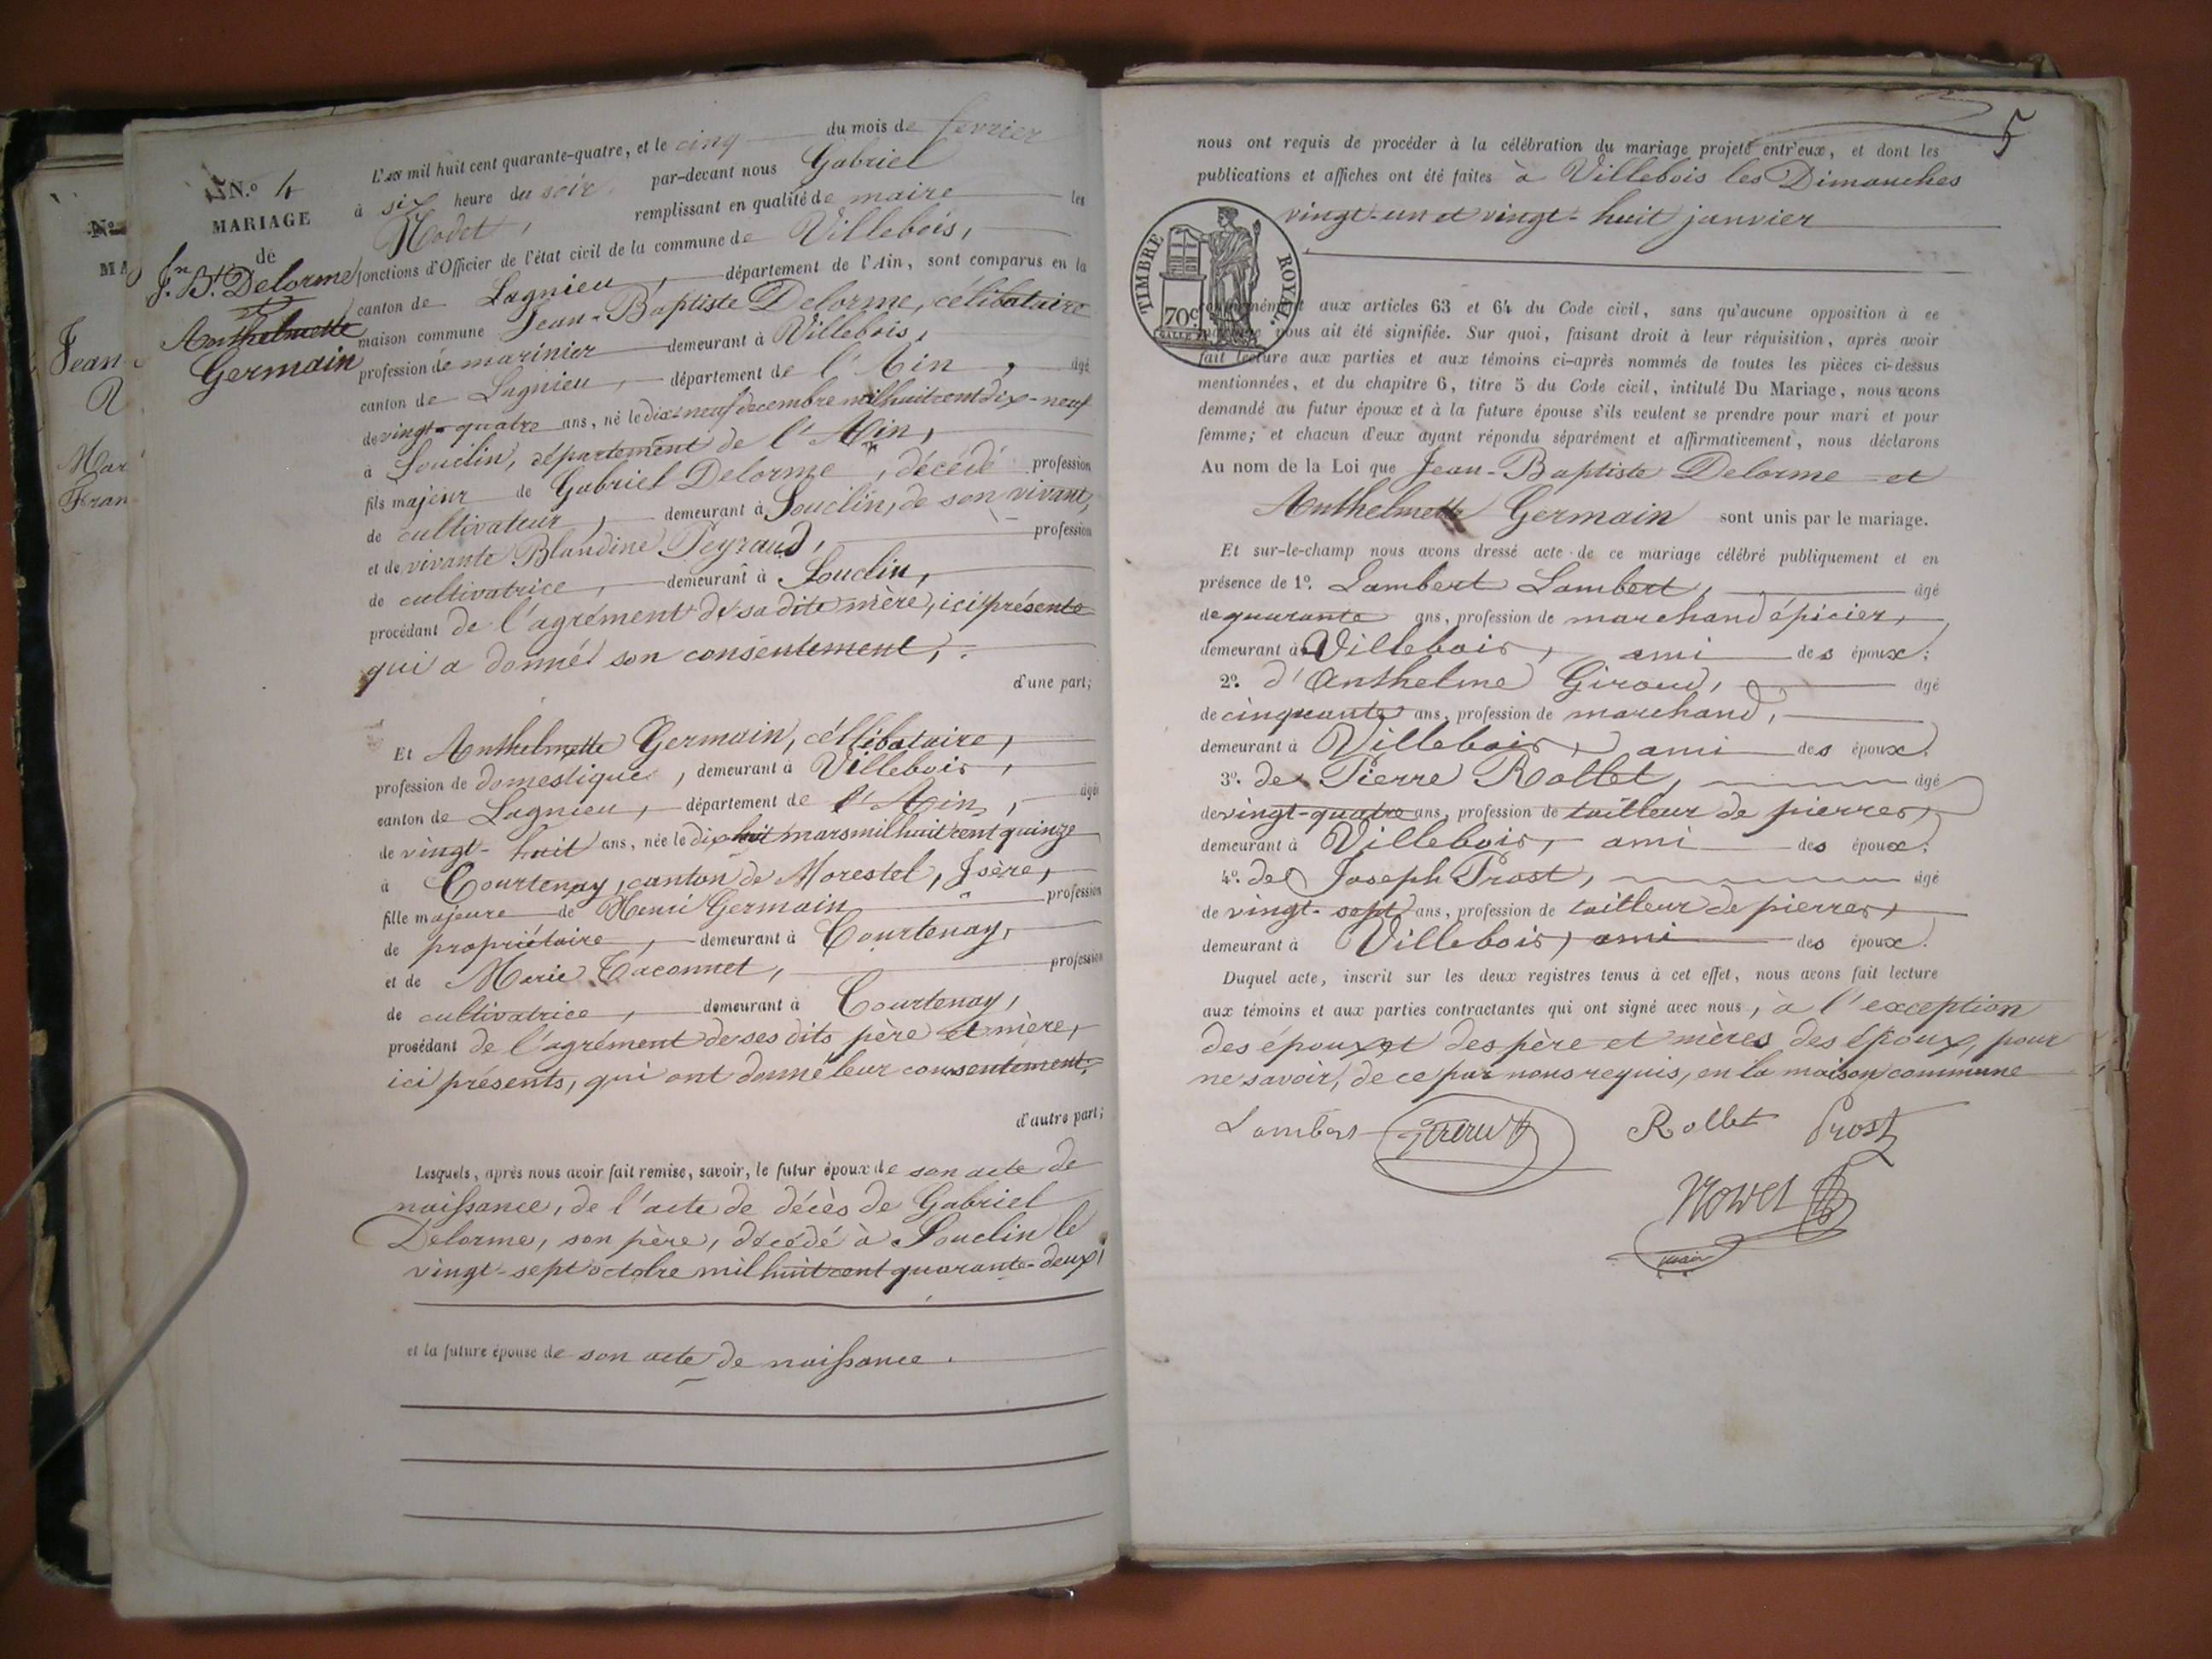 N.º 4
MARIAGE
de
J.n B.t Delorme
et
Anthelmette
Germain
L'an mil huit cent quarante-quatre, et le cinq du mois de fevrier
à six heure du soir par-devant nous Gabriel
Nodet, remplissant en qualité de maire les
fonctions d'Officier de l'état civil de la commune de Villebois,
canton de Lagnieu, département de l'Ain, sont comparus en la
maison commune Jean-Baptiste Delorme, célibataire
profession de marinier demeurant à Villebois,
canton de Lagnieu, département de l'Ain, âgé
de vingt-quatre ans, né le dix-neuf decembre mil huit cent dix-neuf
à Souclin, département de l'Ain,
fils majeur de Gabriel Delorme, décédé profession
de cultivateur, demeurant à Souclin, de son vivant,
et de vivante Blandine Peyraud, profession
de cultivatrice, demeurant à Souclin,
procédant de l'agrément de sa dite mère, ici présente
qui a donné son consentement,
d'une part;
Et Anthelmette Germain, célibataire,
profession de domestique, demeurant à Villebois,
canton de Lagnieu, département de l'Ain, âgée
de vingt-huit ans, née le dix huit mars mil huit cent quinze
à Courtenay, canton de Morestel, Isère,
fille majeure de Henri Germain profession
de propriétaire, demeurant à Courtenay,
et de Marie Taconnet, profession
de cultivatrice, demeurant à Courtenay,
procédant de l'agrément de ses dits père et mère,
ici présents, qui ont donné leur consentement.
d'autre part;
Lesquels, après nous avoir fait remise, savoir, le futur époux de son acte de
naissance, de l'acte de décès de Gabriel
Delorme, son père, décédé à Souclin le
vingt-sept octobre mil huit cent quarante-deux;
et la future épouse de son acte de naissance.
5
nous ont requis de procéder à la célébration du mariage projeté entr'eux, et dont les
publications et affiches ont été faites à Villebois les Dimanches
vingt-un et vingt-huit janvier
TIMBRE ROYAL.
70c
conformément aux articles 63 et 64 du Code civil, sans qu'aucune opposition à ce
mariage nous ait été signifiée. Sur quoi, faisant droit à leur réquisition, après avoir
fait lecture aux parties et aux témoins ci-après nommés de toutes les pièces ci-dessus
mentionnées, et du chapitre 6, titre 5 du Code civil, intitulé Du Mariage, nous avons
demandé au futur époux et à la future épouse s'ils veulent se prendre pour mari et pour
femme; et chacun d'eux ayant répondu séparément et affirmativement, nous déclarons
Au nom de la Loi que Jean-Baptiste Delorme et
Anthelmette Germain sont unis par le mariage.
Et sur-le-champ nous avons dressé acte de ce mariage célébré publiquement et en
présence de 1º. Lambert Lambert, âgé
de quarante ans, profession de marchand épicier,
demeurant à Villebois, ami des époux;
2º. d'Anthelme Giroud, âgé
de cinquante ans, profession de marchand,
demeurant à Villebois, ami des époux.
3º. de Pierre Rollet, âgé
de vingt-quatre ans, profession de tailleur de pierres,
demeurant à Villebois, ami des époux;
4º. de Joseph Prost, âgé
de vingt-sept ans, profession de tailleur de pierres,
demeurant à Villebois, ami des époux.
Duquel acte, inscrit sur les deux registres tenus à cet effet, nous avons fait lecture
aux témoins et aux parties contractantes qui ont signé avec nous, à l'exception
des époux et des père et mères des époux, pour
ne savoir, de ce par nous requis, en la maison commune
Lambert Girout Rollet Prost
Nodet
maire
Jean
Mar
Fran